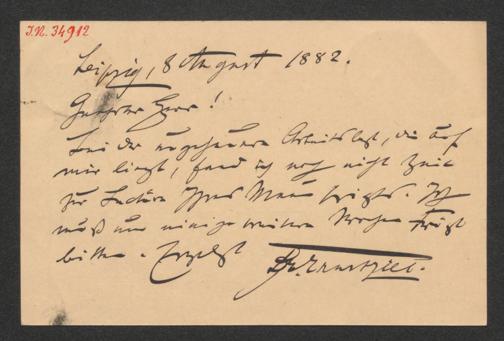 I.N. 34912
Leipzig, 8 August 1882.
Geehrter Herr!
Bei der ungeheuren Arbeitslast, die auf
mir liegt, fand ich noch nicht Zeit
zur Lectüre Ihres Manuscripts. Ich
muß um einige weitere Wochen Frist
bitten. Ergebenst
Dr. Ernst Ziel.